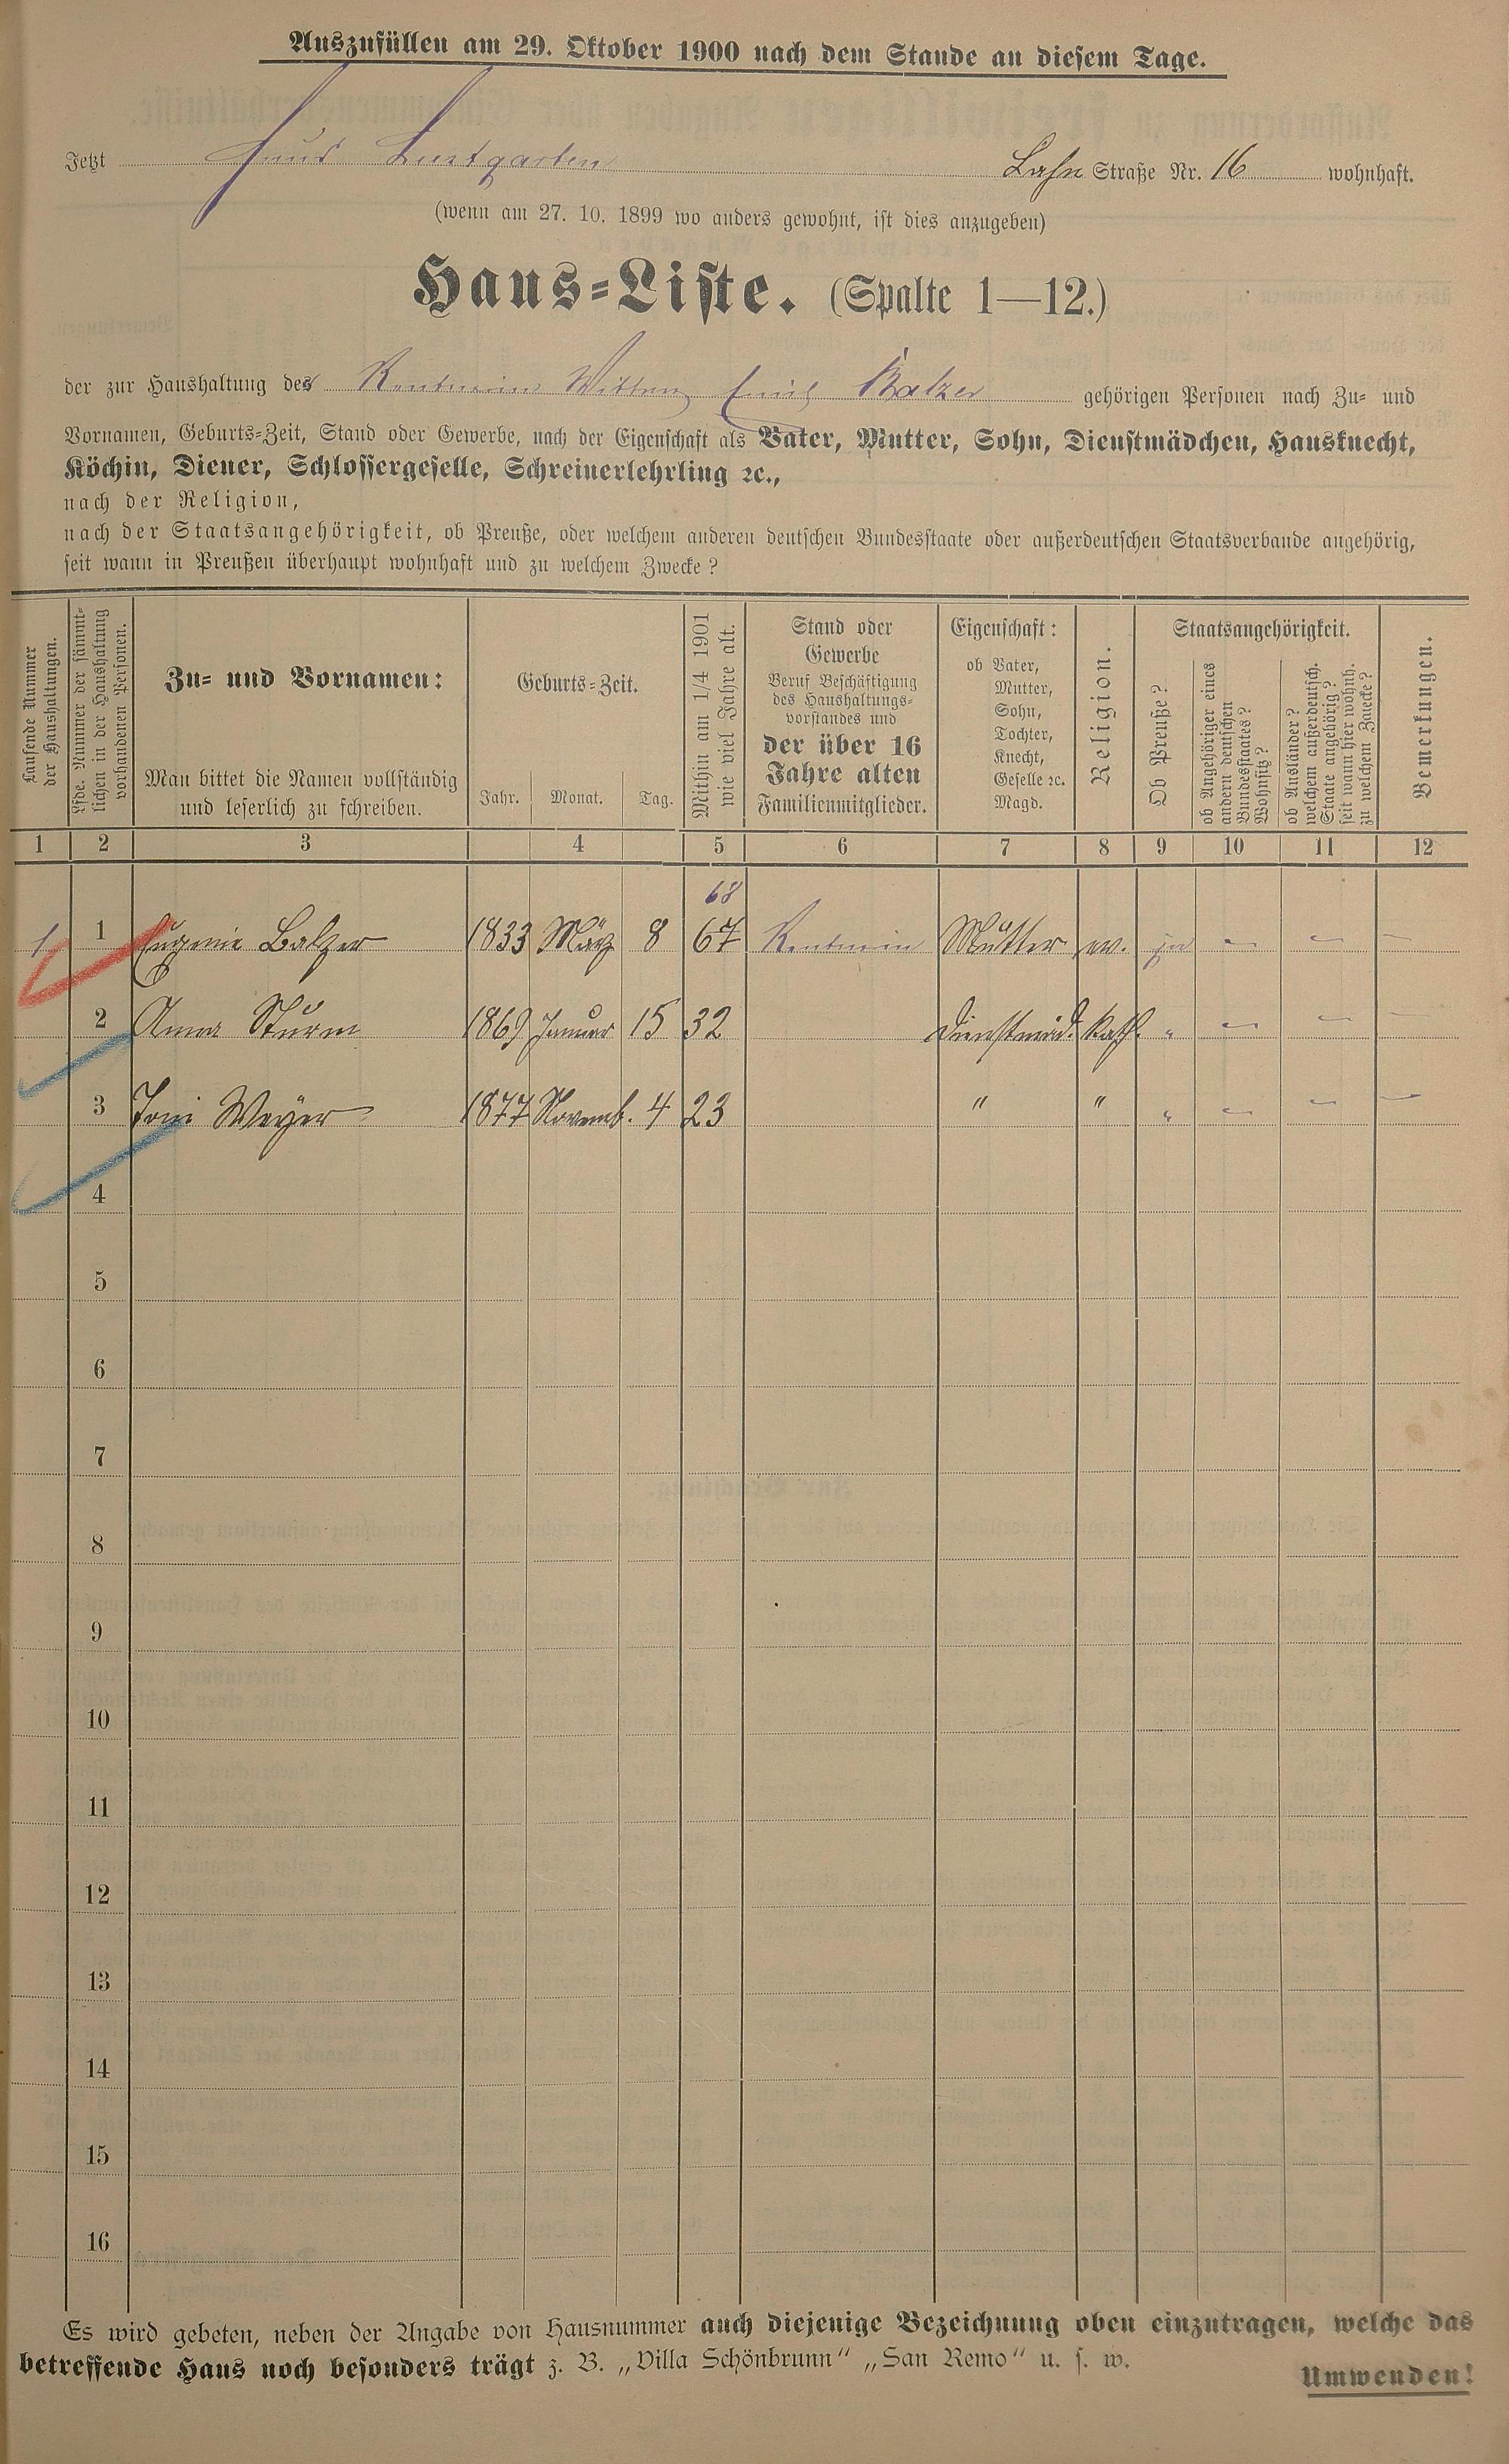 Auszufüllen am 29. Oktober 1900 nach dem Stande an diesem Tage.
Jetzt Haus Lustgarten Lahn Straße Nr. 16 wohnhaft.
(wenn am 27. 10. 1899 wo anders gewohnt, ist dies anzugeben)
Haus-Liste. (Spalte 1—12.)
der zur Haushaltung der Rentnerin Wittwe Emil Balzer gehörigen Personen nach Zu- und
Vornamen, Geburts-Zeit, Stand oder Gewerbe, nach der Eigenschaft als Vater, Mutter, Sohn, Dienstmädchen, Hausknecht,
Köchin, Diener, Schlossergeselle, Schreinerlehrling ꝛc.,
nach der Religion,
nach der Staatsangehörigkeit, ob Preuße, oder welchem anderen deutschen Bundesstaate oder außerdeutschen Staatsverbande angehörig,
seit wann in Preußen überhaupt wohnhaft und zu welchem Zwecke?
Laufende Nummer
der Haushaltungen.
Lfde. Nummer der sämmt-
lichen in der Haushaltung
vorhandenen Personen.
Zu- und Vornamen:
Man bittet die Namen vollständig
und leserlich zu schreiben.
Geburts-Zeit.
Jahr. Monat. Tag.
Mithin am 1/4 1901
wie viel Jahre alt.
Stand oder
Gewerbe
Beruf Beschäftigung
des Haushaltungs-
vorstandes und
der über 16
Jahre alten
Familienmitglieder.
Eigenschaft:
ob Vater,
Mutter,
Sohn,
Tochter,
Knecht,
Geselle ꝛc.
Magd.
Religion.
Staatsangehörigkeit.
Ob Preuße?
ob Angehöriger eines
andern deutschen
Bundesstaates?
Wohnsitz?
ob Ausländer?
welchem außerdeutsch.
Staate angehörig?
seit wann hier wohnh.
zu welchem Zwecke?
Bemerkungen.
1 2 3 4 5 6 7 8 9 10 11 12
68
1 1 Eugenie Balzer 1833 März 8 67 Rentnerin Mutter ev. ja — — —
2 Anna Sturm 1869 Januar 15 32 Dienstmäd. Kath. " — — —
3 Toni Weyer 1877 Novemb. 4 23 " " " — — —
4
5
6
7
8
9
10
11
12
13
14
15
16
Es wird gebeten, neben der Angabe von Hausnummer auch diejenige Bezeichnung oben einzutragen, welche das
betreffende Haus noch besonders trägt z. B. „Villa Schönbrunn" „San Remo" u. s. w.
Umwenden!